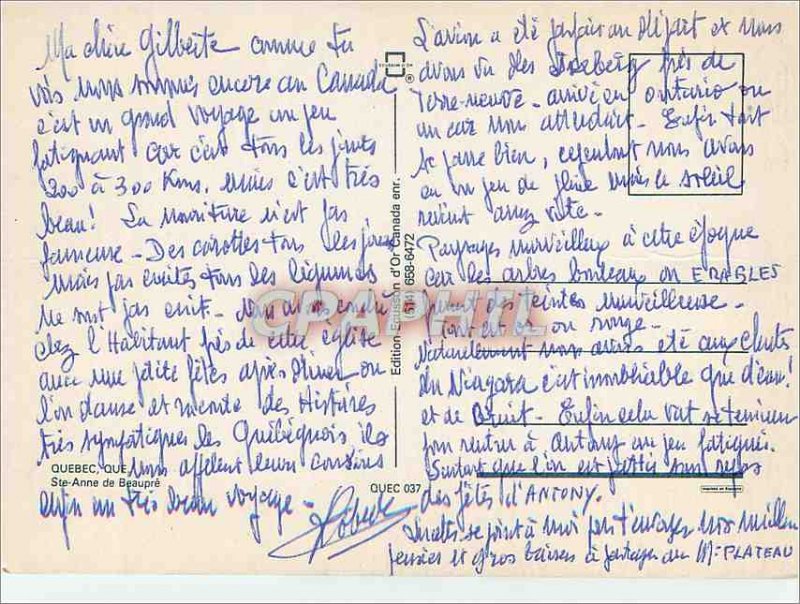 Ma chère Gilberte comme tu
vois nous sommes encore au Canada
c'est un grand voyage un peu
fatiguant car c'est tous les jours
200 à 300 Kms. mais c'est très
beau! La nourriture n'est pas
fameuse - Des carottes tous les jours
mais pas cuites tous les légumes
ne sont pas cuit. nous avons
chez l'Habitant près de cette église
avec une petite fêtes après dîner on
l'on danse et raconte des Histoires
très sympatiques les Québéquois ils
nous appellent leurs cousins
enfin un très beau voyage -
QUEBEC, QUE
Ste-Anne de Beaupré
QUEC 037
ECUSSON D'OR
®
Edition Ecusson d'Or Canada enr.
(514) 658-6472
CPAPHIL
L'avion a été parfait au départ et nous
avons vu des Iceberg près de
Terre-neuve - arrivé en ontario ou
un car nous attendait - Enfin tout
se passe bien, cependant nous avons
eu un peu de pluie mais le soleil
revient assez vite -
Paysages merveilleux à cette époque
car les arbres bouleaux ou ERABLES
des teintes merveilleuse -
tout est or ou rouge -
Naturellement nous avons été aux chutes
du Niagara c'est inoubliable que d'eau!
et de Bruit - Enfin cela va se terminer
pour rentrer à Antony un peu fatigués.
Surtout que l'on est partis sans repos
des fêtes d'ANTONY.
se joint à moi pour t'envoyer nos meilleures
pensées et gros baisers à partager au Mt PLATEAU